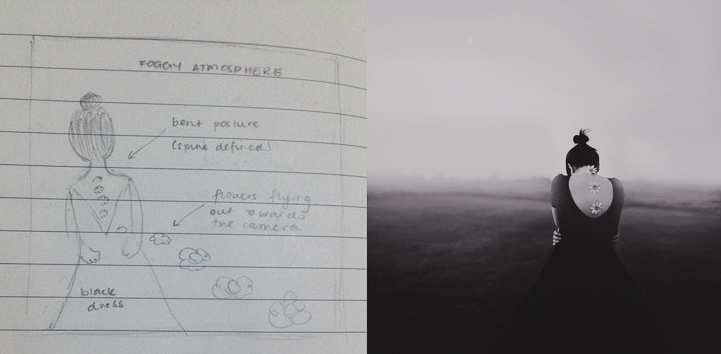 FOGGY ATMOSPHERE
bent posture
(spine defined)
flowers flying
out towards
the camera
black
dress